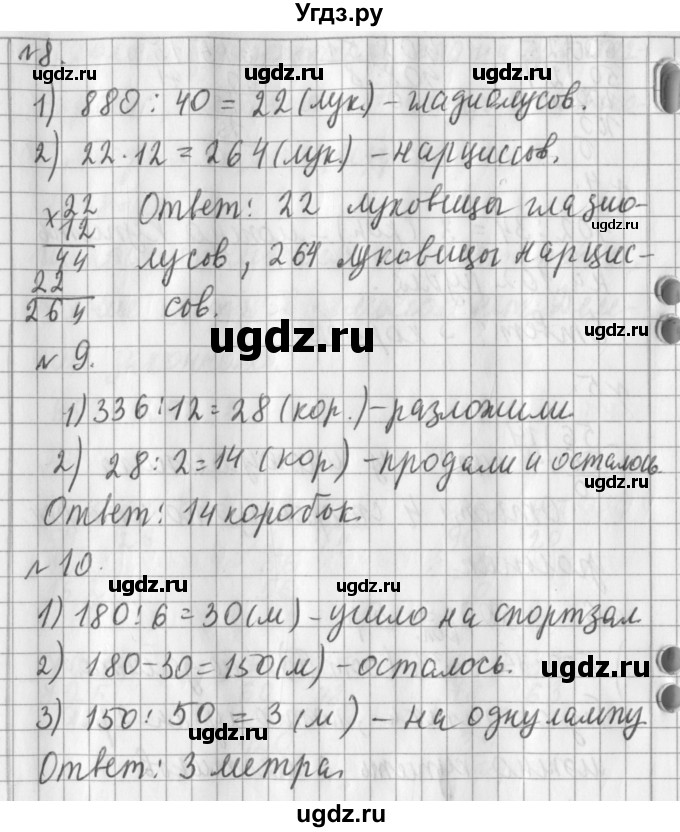 Угдз.ру
№8.
1) 880 : 40 = 22 (лук.) – гладиолусов.
2) 22 · 12 = 264 (лук.) – нарциссов.
×22 Ответ: 22 луковицы гладио-
12
44 лусов, 264 луковицы нарцис-
22
264 сов.
№ 9.
1) 336 : 12 = 28 (кор.) – разложили
2) 28 : 2 = 14 (кор) – продали и осталось.
Ответ: 14 коробок.
№ 10.
1) 180 : 6 = 30 (м) – ушло на спортзал
2) 180 – 30 = 150 (м) – осталось.
3) 150 : 50 = 3 (м) – на одну лампу
Ответ: 3 метра.
ugdz.ru
ugdz.ru
ugdz.ru
ugdz.ru
ugdz.ru
ugdz.ru
ugdz.ru
ugdz.ru
ugdz.ru
ugdz.ru
ugdz.ru